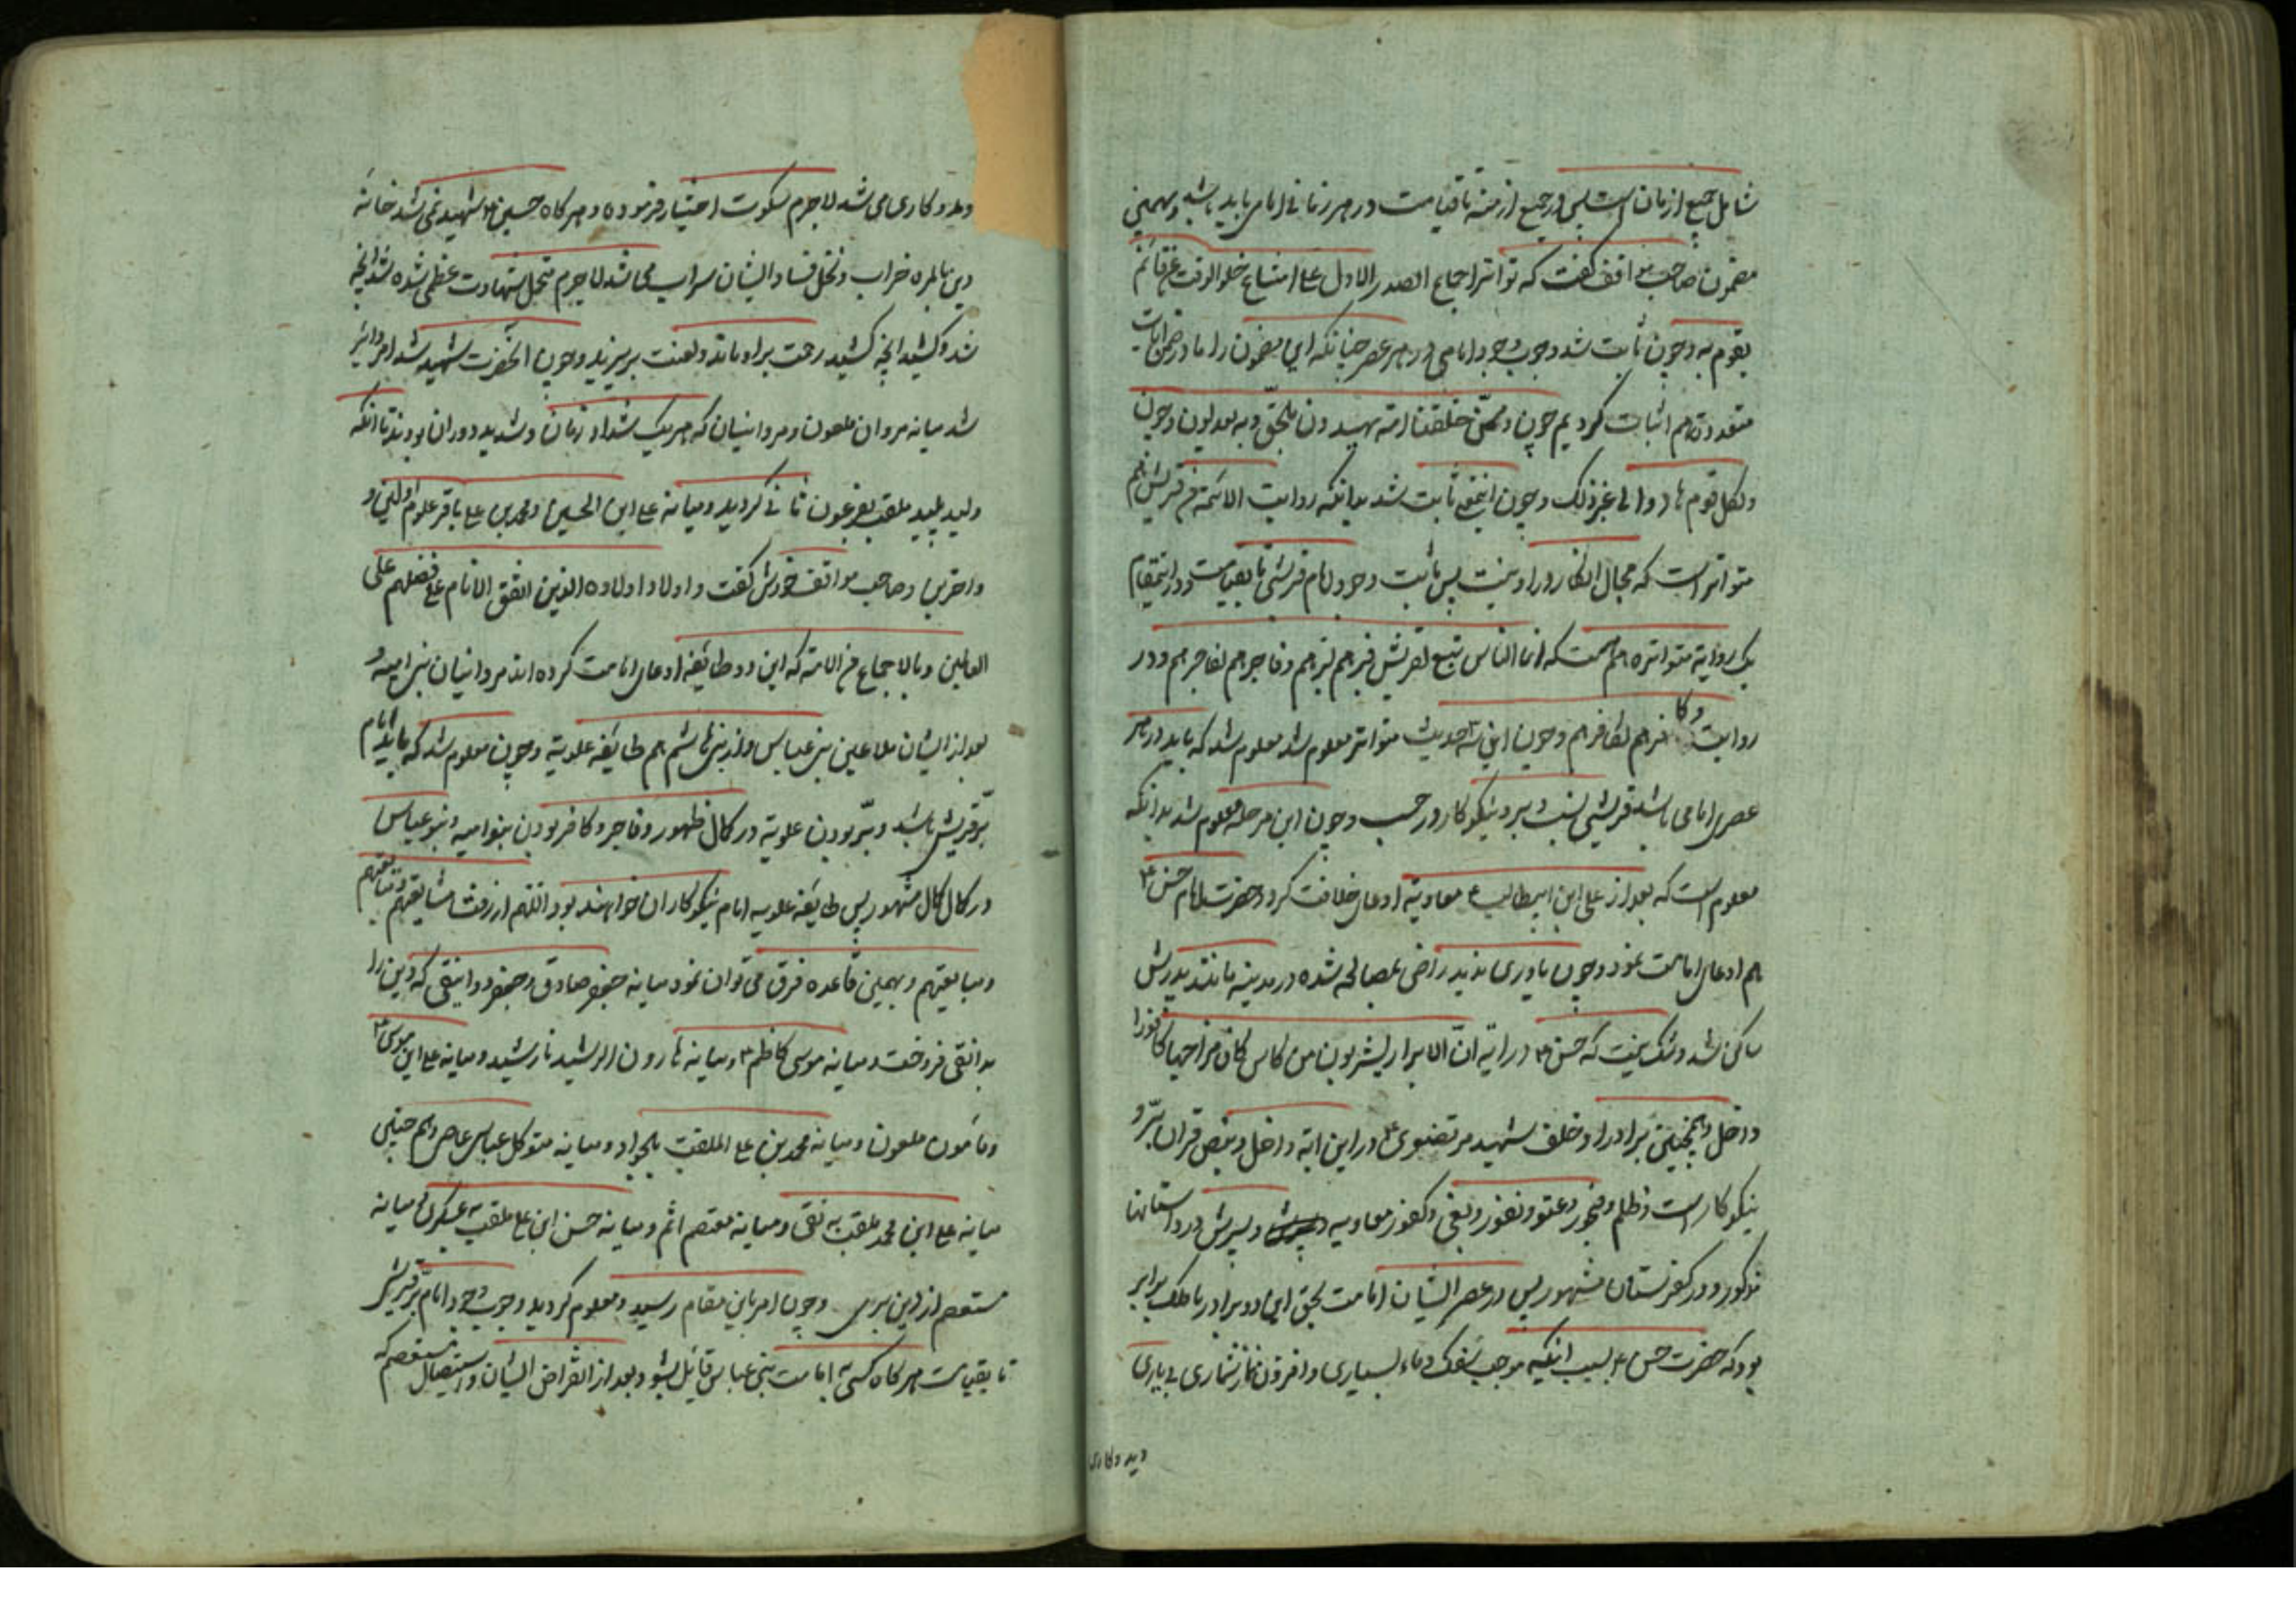 شامل جمیع ازمان است پس در جمیع ازمنه تا قیامت در هر زمانی امامی باید باشد و بهمین
مضمون صاحب مواقف گفت که تواتر اجماع الصدر الاول علی امتناع خلو الوقت عن قائم
یقوم به و چون ثابت شد وجوب وجود امامی در هر عصر چنانکه این مضمون را ما در ضمن آیات
متعدده هم اثبات کردیم چون و ممّن خلقنا امة یهدون بالحقّ و به یعدلون و چون
ولکل قوم هاد الی غیر ذلک و چون این ثابت شد بدانکه روایت الائمة من قریش هم
متواتر است که مجال انکار در او نیست پس ثابت وجود امام قرشی تا بقیامت و در اینمقام
یک روایة متواتره هم هست که انا الناس تبع لقریش فبرهم لبرهم و فاجرهم لفاجرهم و در
روایت و کافرهم لکافرهم و چون این سه حدیث متواتر معلوم شد معلوم شد که باید در هر
عصر امامی باشد قریشی نسب و بر و نیکوکار در حسب و چون این مرحله معلوم شد بدانکه
معلوم است که بعد از علی ابن ابیطالب ع معاویة ادعای خلافت کرد و حضرت امام حسن ع
هم ادعای امامت نمود و چون یاوری ندید راضی بمصالحه شده در مدینه مانند پدرش
ساکن شد و شک نیست که حسن ع در آیه انّ الابرار یشربون من کاس کان مزاجها کافورا
داخل و همچنین برادر او خلف شهید مرتضوی ع در این آیة داخل و بنص قران برّ و
نیکوکار است و ظلم و فجور و عتو و نفور و بغی و کفور معاویه و پسرش در داستانها
مذکور و در کفرستان مشهور پس در عصر ایشان امامت بحق این دو برادر با ملک برابر
بود که حضرت حسن ع بسبب انکه موجب سفک دماء بسیاری و افزون از شماری بی یاری
دید و کاری
دید و کاری می شد لاجرم سکوت اختیار فرموده و هر کاه حسین ع شهید نمی شد خانه
دین بالمره خراب و نخل فساد ایشان سراب می شد لاجرم متحمل شهادت عظمی شده شد آنچه
شد و کشید آنچه کشید رحمت بر او باد و لعنت بر یزید و چون آنحضرت شهید شد امر دائر
شد میانه مروان ملعون و مروانیان که هر یک شداد زمان و شدید دوران بودند تا آنکه
ولید پلید ملقب بفرعون ثانی کردید و میانه علی ابن الحسین و محمد بن علی باقر علوم اولین و
و اخرین و صاحب مواقف خودش گفت و اولاد اولاده الذین اتفق الانام علی فضلهم علی
العالمین و بالاجماع من الامة که این دو طایفه ادعای امامت کرده اند مروانیان بنی امیه و
بعد از ایشان ملاعین بنی عباس و از بنی هاشم هم طایفه علویة و چون معلوم شد که باید امام
برّ قریش باشد و برّ بودن علویة در کمال ظهور و فاجر و کافر بودن بنو امیه و بنو عباس
در کمال کمال مشهور پس طایفه علویه امام نیکوکاران خواهند بود اللهم ارزقنا مشایعتهم و متابعتهم
و مبایعتهم و بهمین قاعده فرق می توان نمود میانه جعفر صادق و جعفر دوانیقی که دین را
بدانقی فروخت و میانه موسی کاظم ع و میانه هارون الرشید نارشید و میانه علی ابن موسی ع
و مأمون ملعون و میانه محمد بن علی الملقب بالجواد و میانه متوکل عباس عاصی و هم چنین
میانه علی ابن محمد ملقب به نقی و میانه معتصم اثم و میانه حسن ابن علی ملقب به عسکری میانه
مستعصم از دین بری و چون امر باین مقام رسید و معلوم کردید وجوب وجود امام برّ قریش
تا بقیامت هر کاه کسی به امامت بنی عباس قایل شود بعد از انقراض ایشان و استیصال مستعصم که